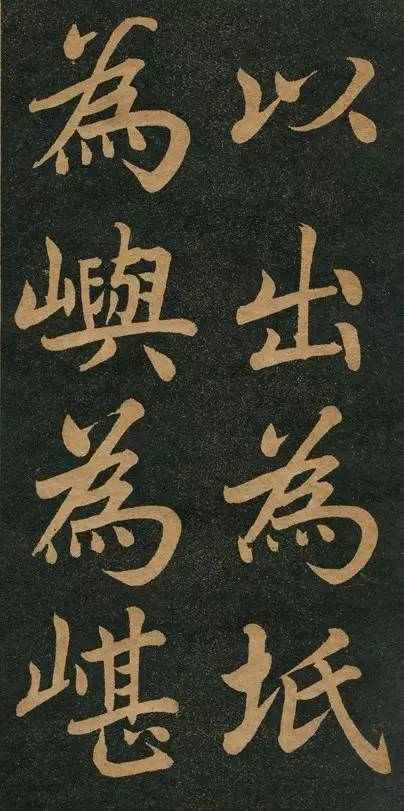 以出為坻
為嶼為嵁